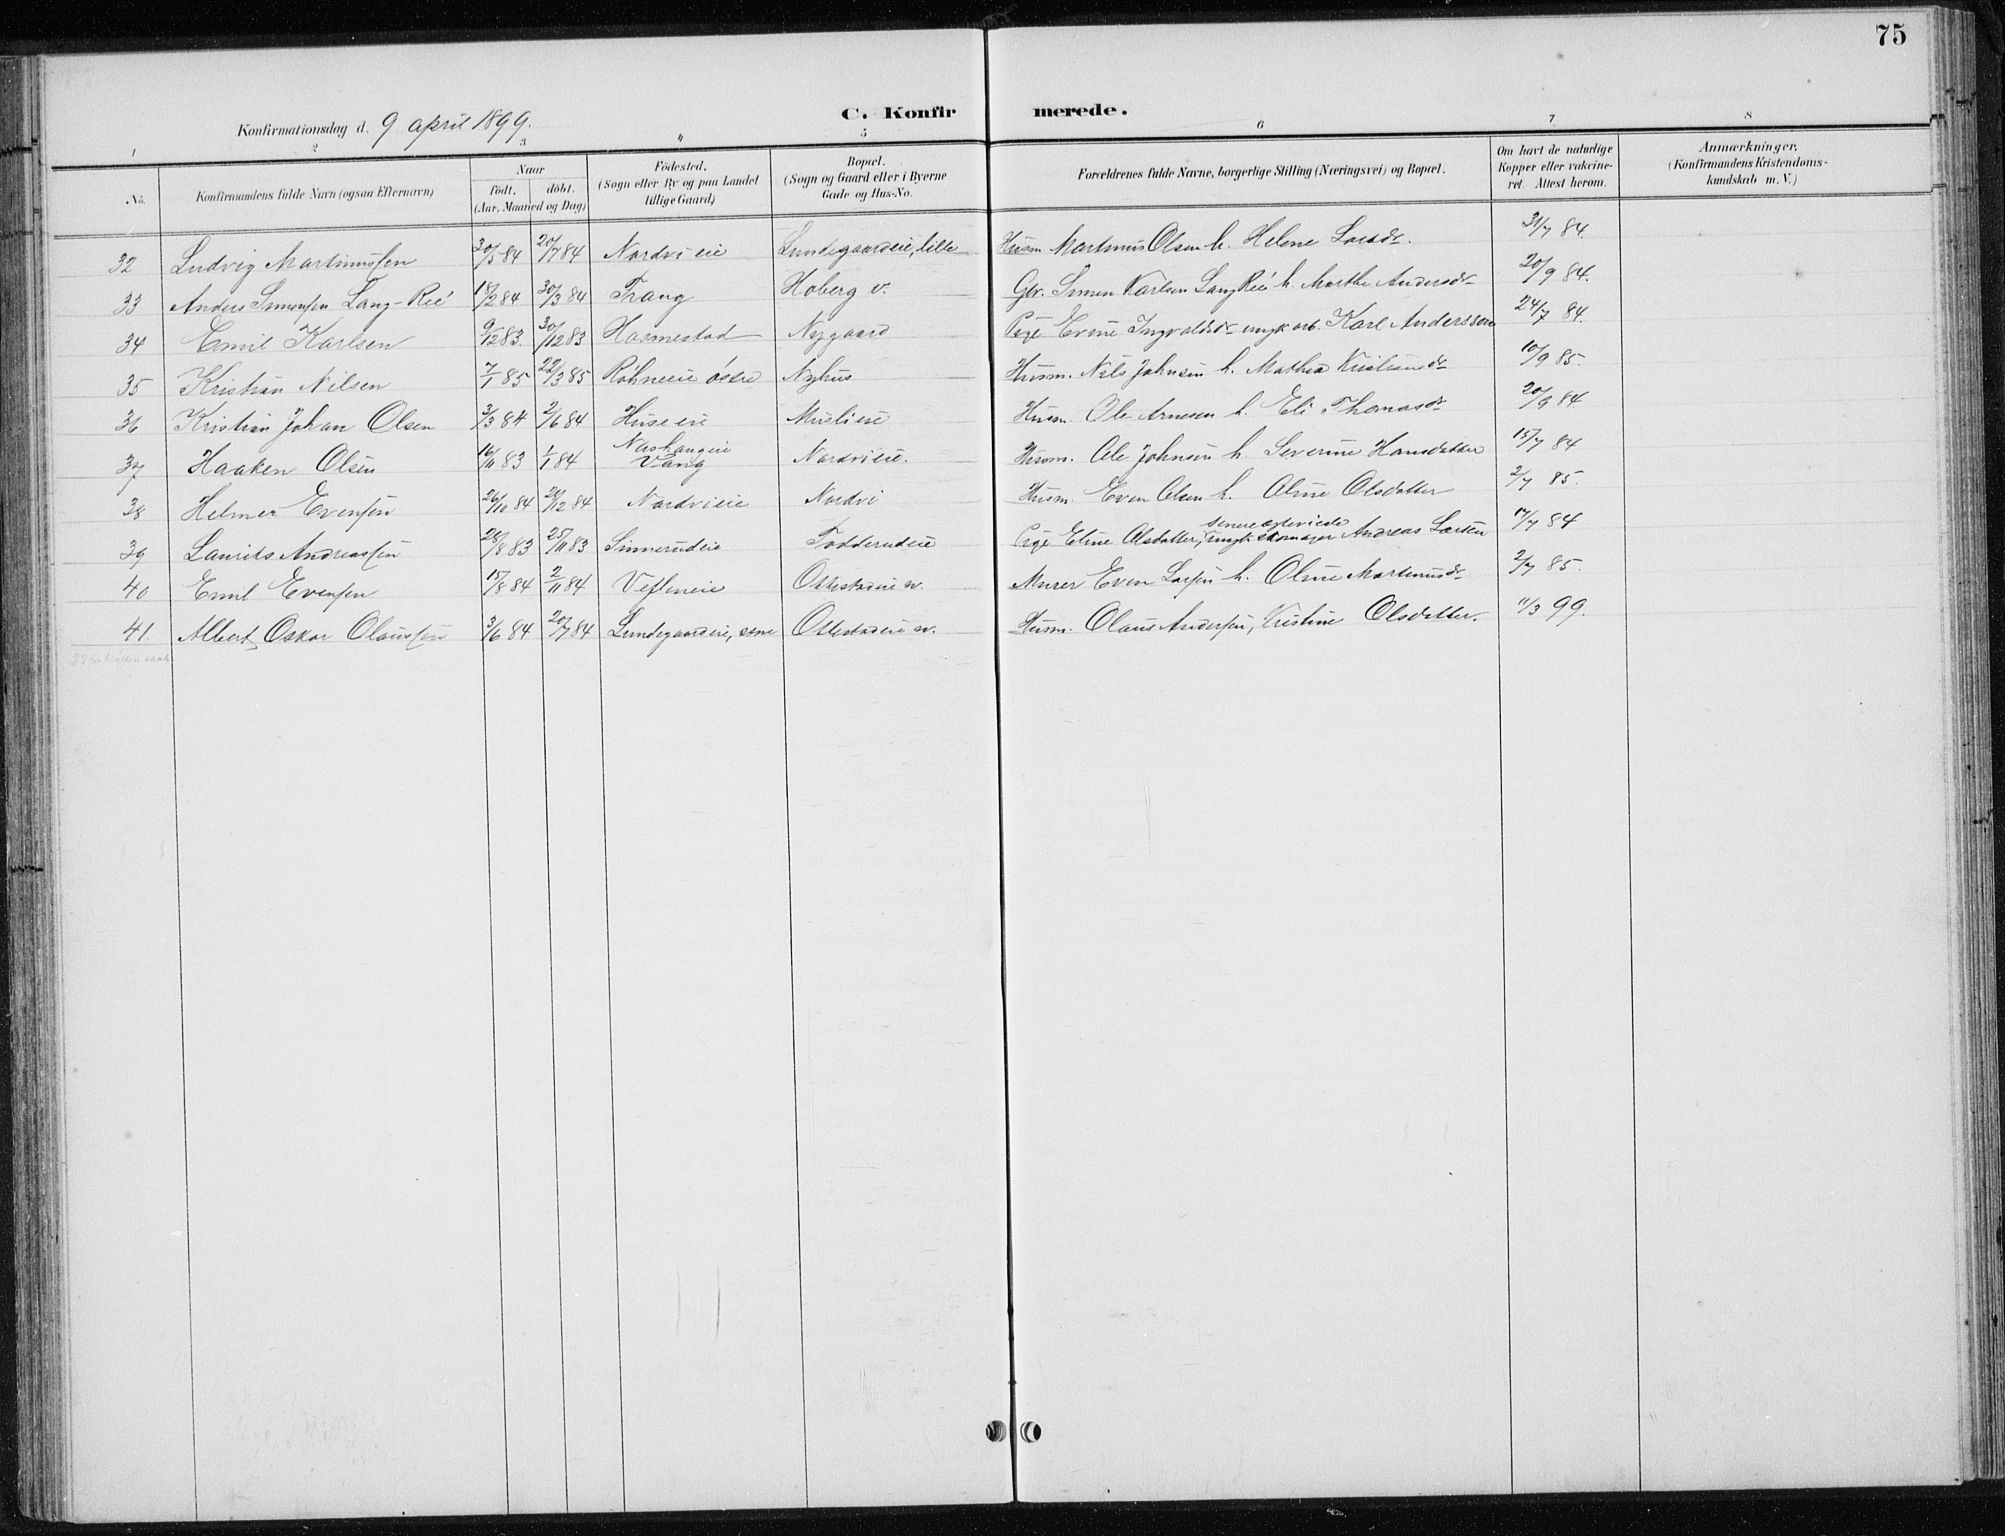 75
Konfirmationsdag d. 9 april 1899.
C. Konfirmerede.
1 2 3 4 5 6 7 8
No.
Konfirmandens fulde Navn (ogsaa Efternavn)
Naar
födt. döbt.
(Aar, Maaned og Dag)
Födested.
(Sogn eller By og paa Landet
tillige Gaard)
Bopæl.
(Sogn og Gaard eller i Byerne
Gade og Hus-No.
Forældrenes fulde Navne, borgerlige Stilling (Næringsvei) og Bopæl.
Om havt de naturlige
Kopper eller vakcine-
ret. Attest herom.
Anmærkninger,
(Konfirmandens Kristendoms-
kundskab m. V.)
32 Ludvig Martinussen 30/5 84 20/7 84 Nordvi eie Lundsgaardeie, lille Husm. Martinus Olsen h. Helene Larsdr. 31/7 84.
33 Anders Simensen Lang-Ree 18/2 84 30/3 84 Frang Hoberg v. Gbr. Simen Karlsen Lang Ree h. Marthe Andersdr 20/9 84.
34 Emil Karlsen 9/12 83. 30/12 83 Hasmestad Nygaard Pige Evine Ingvaldsdr ungk. arb. Karl Anderssen 24/7 84.
35 Kristian Nilsen 7/1 85 22/3 85 Röhneeie östre Nyhus Husm. Nils Johnsen h. Mathea Kristiansdr 10/9 85.
36 Kristian Johan Olsen 3/3 84 2/6 84 Huseeie Muslieie Husm. Ole Arnesen h. Eli Thomasdr 20/9 84
37 Haaken Olsen 16/11 83 1/1 84 Nashaugeie Vang Nordvieie. Husm. Ole Johnsen h. Severine Hansdatter 15/7 84
38 Helmer Evensen 26/10 84 28/12 84 Nordvieie Nordvi Husm. Even Olsen h. Oline Olsdatter 2/7 85.
39 Laurits Andreassen 28/8 83 25/11 83 Sinnerudeie Todderudeie Pige Eline Olsdatter, senere egteviede ungk. skomager Andreas Larsen 17/7 84
40 Emil Evensen 15/8 84 2/11 84 Vesleneie Ottestadeie n. Murer Even Larsen h. Oline Martinusdr 2/7 85.
41. Albert Oskar Olaussen 3/6 84 20/7 84 Lundsgaardeie, store Ottestadeie n. Husm. Olaus Andersen, Kristine Olsdatter. 11/3 99.